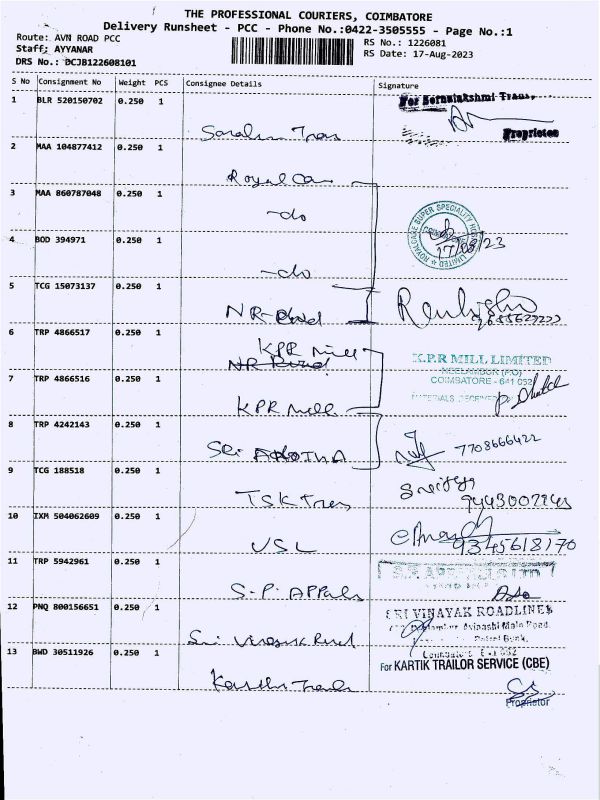 THE PROFESSIONAL COURIERS, COIMBATORE
Delivery Runsheet - PCC - Phone No.:0422-3505555 - Page No.:1
Route: AVN ROAD PCC
RS No.: 1226081
Staff: AYYANAR
RS Date: 17-Aug-2023
DRS No.: DCJB122608101
S No Consignment No Weight PCS Consignee Details Signature
1 BLR 520150702 0.250 1
Proprietor
2 MAA 104877412 0.250 1
Royal Care
3 MAA 860787048 0.250 1
-do
ROYALCARE SUPER SPECIALITY
4 BOD 394971 0.250 1
17/08/23
-do
5 TCG 15073137 0.250 1
6 TRP 4866517 0.250 1
KPR Mill
K.P.R MILL LIMITED
NEELAMBUR (PO)
7 TRP 4866516 0.250 1
COIMBATORE - 641 062
KPR Mill
8 TRP 4242143 0.250 1
7708666422
Sri
9 TCG 188518 0.250 1
TSK Trans
10 IXM 504062609 0.250 1
9345618170
VSL
11 TRP 5942961 0.250 1
S.P. Appals
12 PNQ 800156651 0.250 1
SRI VINAYAK ROADLINES
Avinashi Main Road
Petrol Bunk,
13 BWD 30511926 0.250 1
For KARTIK TRAILOR SERVICE (CBE)
Proprietor